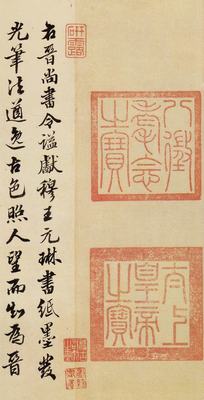 八徵耄念之寶
太上皇帝之寶
研露
右晉尚書令謚獻穆王元琳書紙墨發
光筆法遒逸古色照人望而知為晉